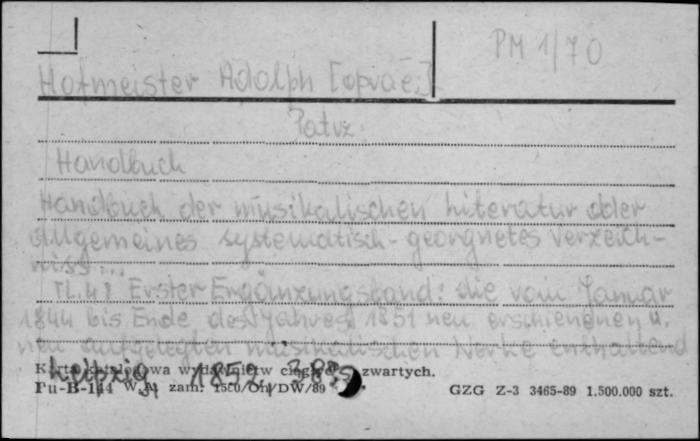 PM 1/70
Hofmeister Adolph [oprac.]
Patrz
Handbuch
Handbuch der musikalischen Literatur oder
allgemeines systematisch-geordnetes Verzeich-
niss...
Tl. 4, Erster Ergänzungsband: die vom Januar
1844 bis Ende des Jahres 1851 neu erschienenen u.
neu aufgelegten musikalischen Werke enthaltend
Leipzig 1852, S.
Karta katalogowa wydawnictw ciągłych zwartych.
Pu-B-144 W.A. zam. 1500/Oh/DW/89
GZG Z-3 3465-89 1.500.000 szt.